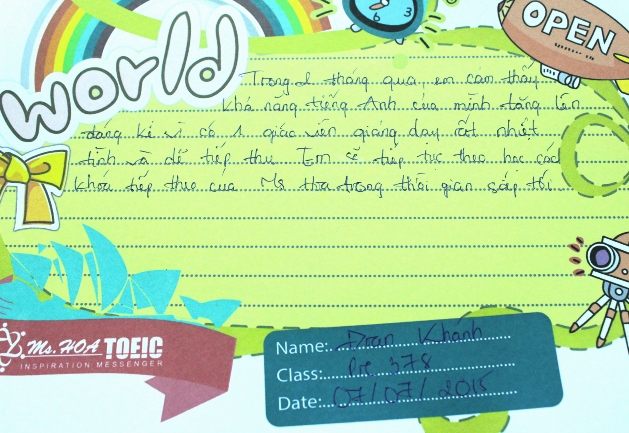 world
OPEN
Trong 2 tháng qua, em cảm thấy
khả năng tiếng Anh của mình tăng lên
đáng kể vì có 1 giáo viên giảng dạy rất nhiệt
tình và dễ tiếp thu. Em sẽ tiếp tục theo học các
khóa tiếp theo của Ms Hoa trong thời gian sắp tới.
Ms. HOA TOEIC
INSPIRATION MESSENGER
Name: Đoan Khánh
Class: Pre 378
Date: 07/07/2015